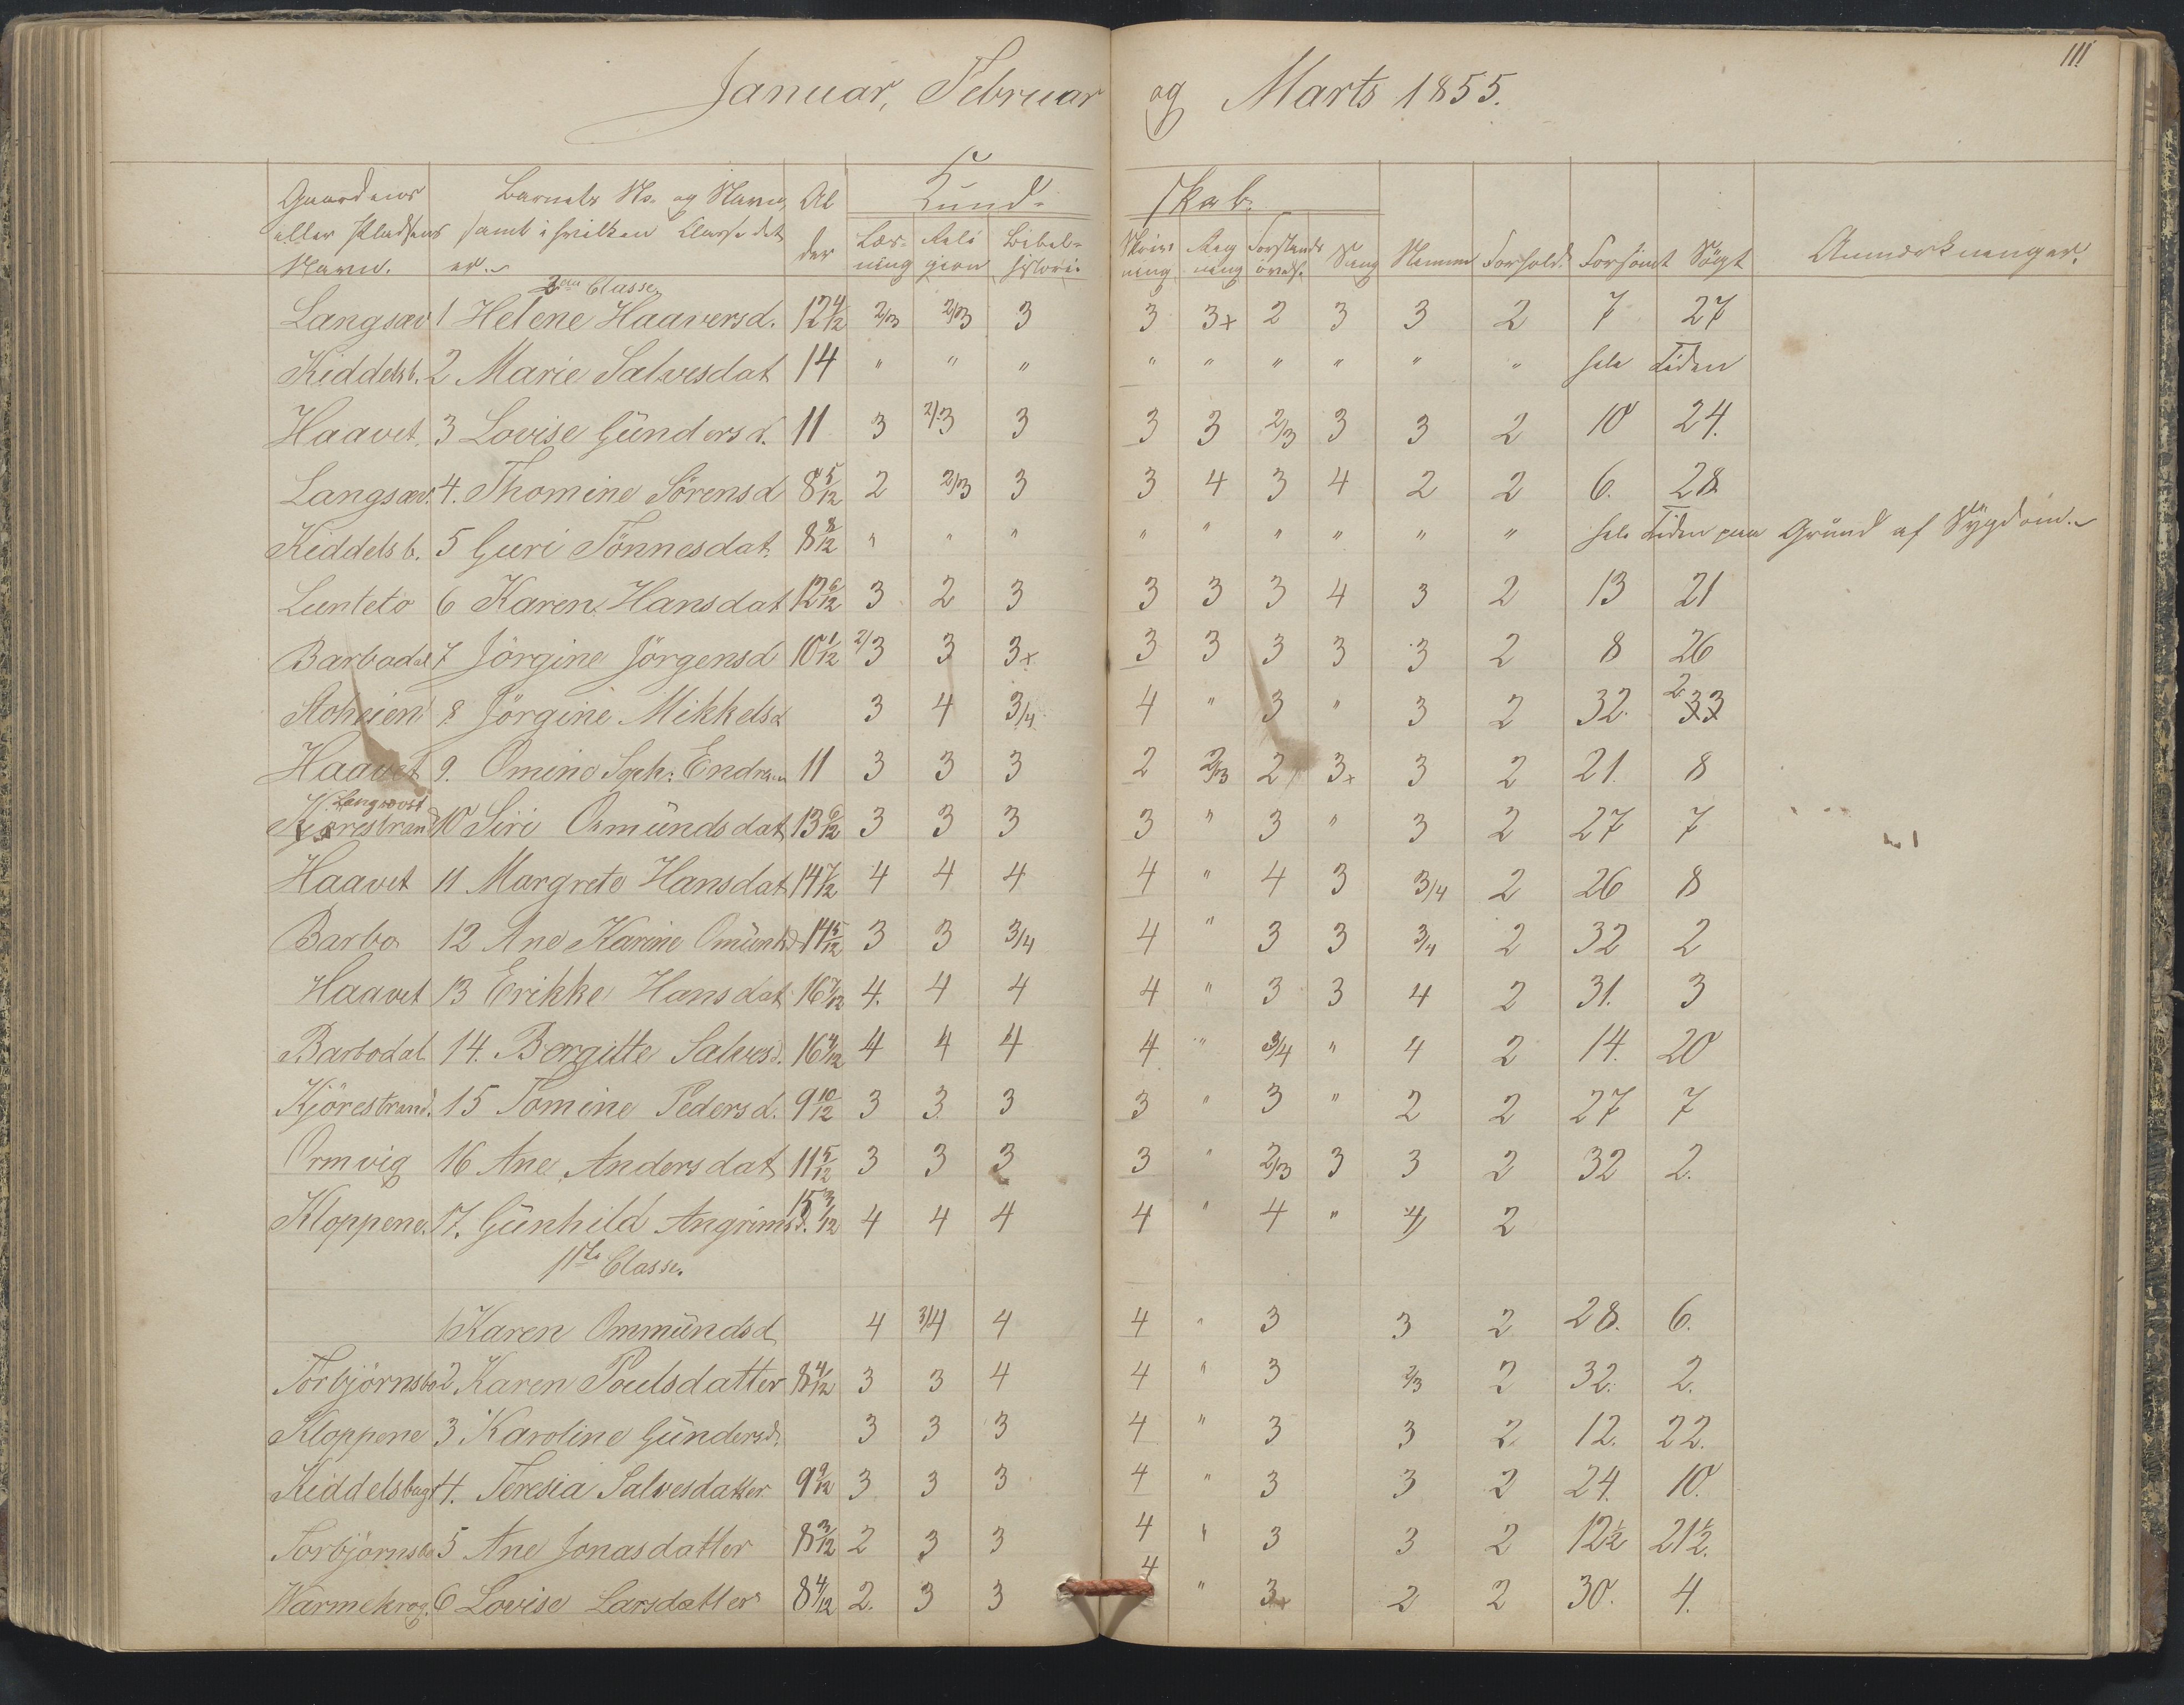 111
Januar, Februar og Marts 1855.
Gaardens eller Pladsens Navn. Barnets No. og Navn, samt i hvilken Classe det er. Alder Kundskab. Læsning Religion Bibelhistorie Skrivning Regning Forstandsövels. Sang Nemme Forhold. Forsömt Sögt Anmærkninger.
2den Classe
Langsæv 1 Helene Haaversd. 12 4/12 2/3 2/3 3 3 3+ 2 3 3 2 7 27
Kiddelsb. 2 Marie Salvesdat 14 " " " " " " " " " hele Tiden
Haavet. 3 Lovise Gündersd. 11 3 2/3 3 3 3 2/3 3 3 2 10 24.
Langsæv. 4. Thomine Sörensd 8 5/12 2 2/3 3 3 4 3 4 2 2 6. 28
Kiddelsb. 5 Guri Tönnesdat. 8 8/12 " " " " " " " " " hele Tiden paa Grund af Sÿgdom.
Lunteto 6 Karen Hansdat 12 6/12 3 2 3 3 3 3 4 3 2 13 21
Barbodal 7 Jörgine Jörgensd 10 1/12 2/3 3 3+ 3 3 3 3 3 2 8 26
Stoheien 8 Jörgine Mikkelsd 3 4 3/4 4 " 3 " 3 2 32. 2 33
Haavet 9. Omine Soph: 11 3 3 3 2 2/3 2 3+ 3 2 21. 8
Langsæv
Kjörestrand 10 Siri Omündsdat 13 6/12 3 3 3 3 " 3 " 3 2 27 7
Haavet 11 Margrete Hansdat 14 7/12 4 4 4 4 " 4 3 3/4 2 26 8
Barbo 12 Ane Karine Omündsd 14 5/12 3 3 3/4 4 " 3 3 3/4 2 32 2
Haavet 13 Erikke Hansdat 16 7/12 4. 4 4 4 " 3 3 4 2 31. 3
Barbodal. 14. Borgitte Salvesd. 16 4/12 4 4 4 4 " 3/4 " 4 2 14. 20
Kjörestrand. 15 Tomine Pedersd. 9 10/12 3 3 3 3 " 3 " 2 2 27 7
Ormvig 16 Ane Andersdat 11 5/12 3 3 3 3 " 2/3 3 3 2 32 2.
Kloppene. 17. Günhild Angrimsd. 15 3/12 4 4 4 4 " 4 " 4 2
1ste Classe.
1 Karen Ommündsd 4 3/4 4 4 " 3 3 2 28. 6.
Torbjörnsbo 2 Karen Poulsdatter 8 4/12 3 3 4 4 " 3 2/3 2 32. 2.
Kloppene 3 Karoline Gündersd. 3 3 3 4 " 3 3 2. 12. 22.
Kiddelsbugt 4. Teresia Salvesdatter 9 9/12 3 3 3 4 " 3 3 2 24. 10.
Torbjörnsbo 5 Ane Jonasdatter 8 3/12 2 3 3 4 " 3 3 2 12½ 21½.
Warmekrog. 6 Lovise Larsdatter 8 4/12 2. 3 3 4 " 3+ 2 2 30. 4.